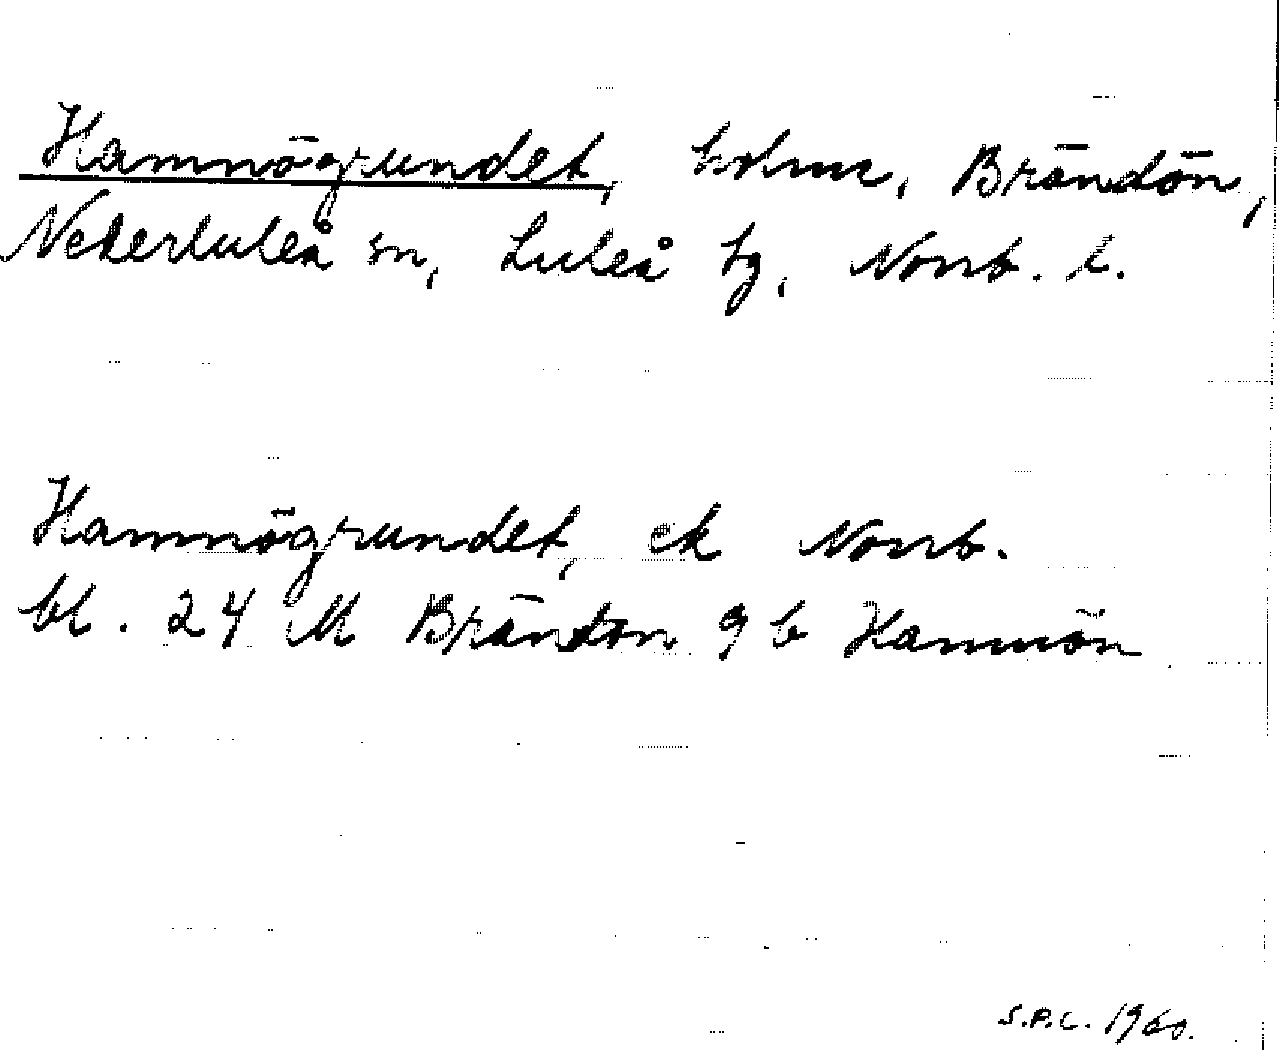 Hamnögrundet, holme, Brändön,
Nederluleå sn, Luleå tg, Norrb. l.
Hamnögrundet, ek Norrb.
bl. 24 M Brändön 9 b Hamnön
S.P.C. 1960.